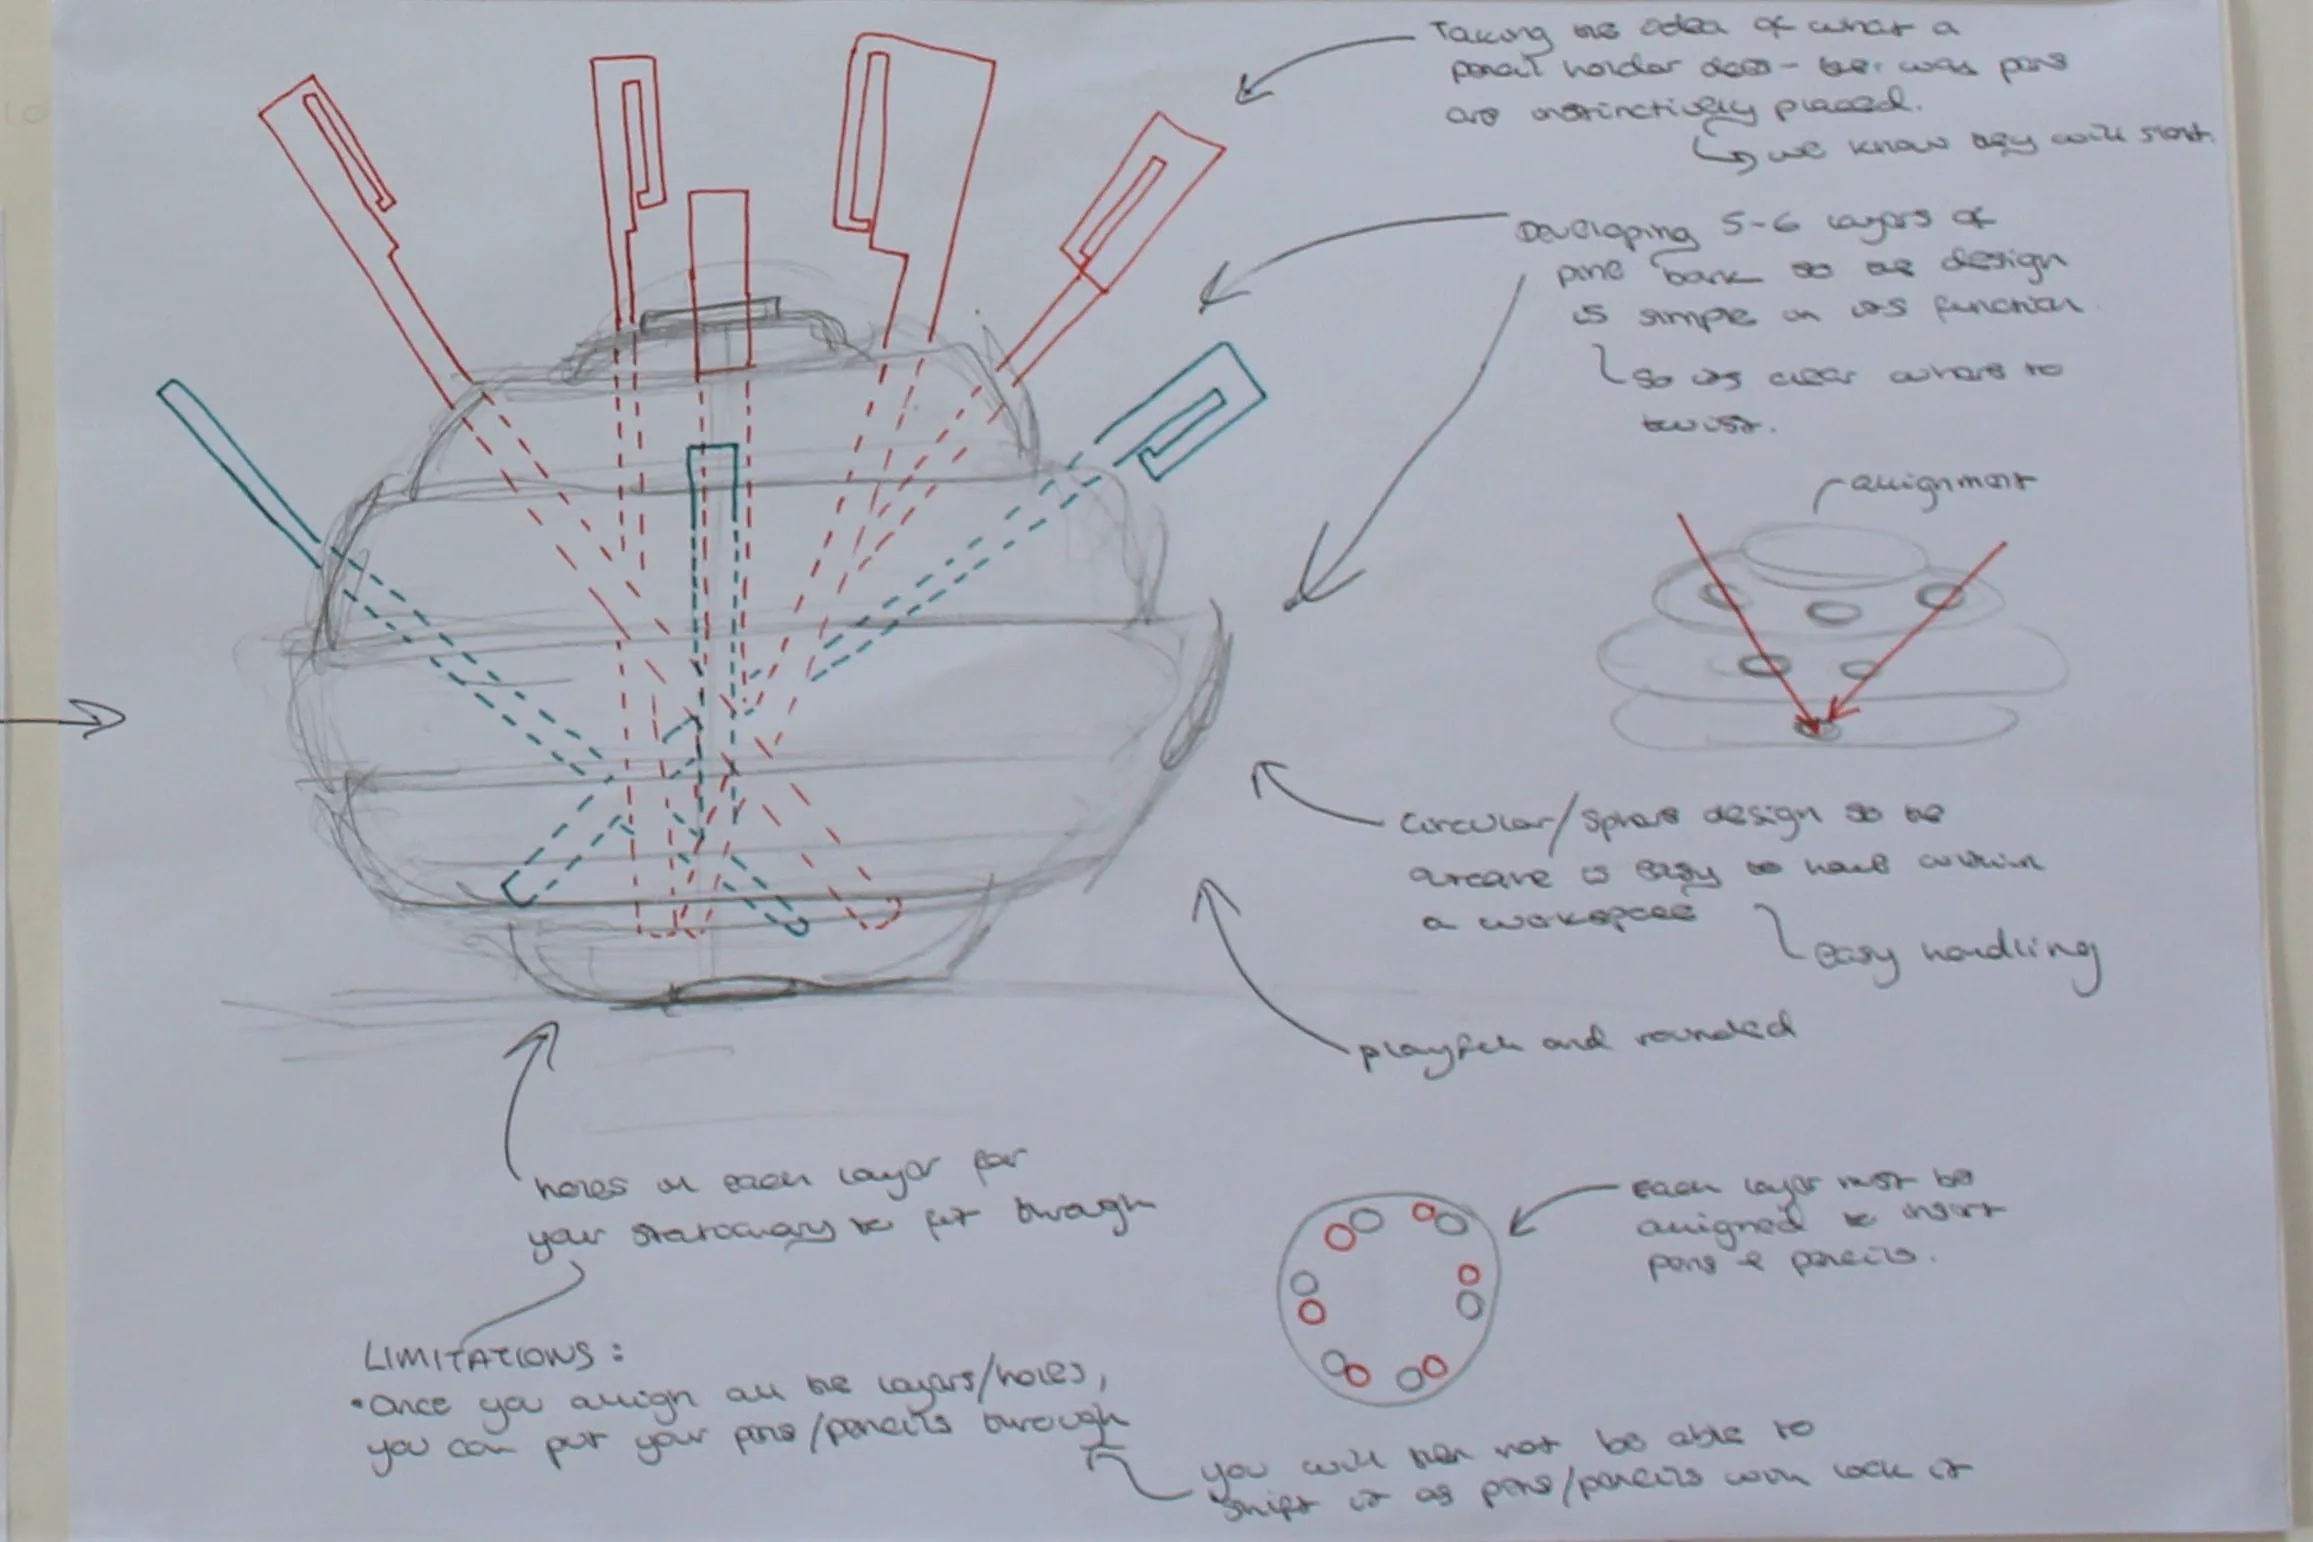 Taking the idea of what a
pencil holder does - the way pens
are instinctively placed.
we know they will slant.
Developing 5-6 layers of
pine bark so the design
is simple in its function
so its clear where to
twist.
allignment
Circular/Sphere design so the
is easy to have within
a workspace
easy handling
playful and rounded
holes on each layer for
your stationary to fit through
each layer must be
alligned to insert
pens & pencils.
LIMITATIONS:
•Once you allign all the layers/holes,
you can put your pens/pencils through
you will then not be able to
shift it as pens/pencils will lock it